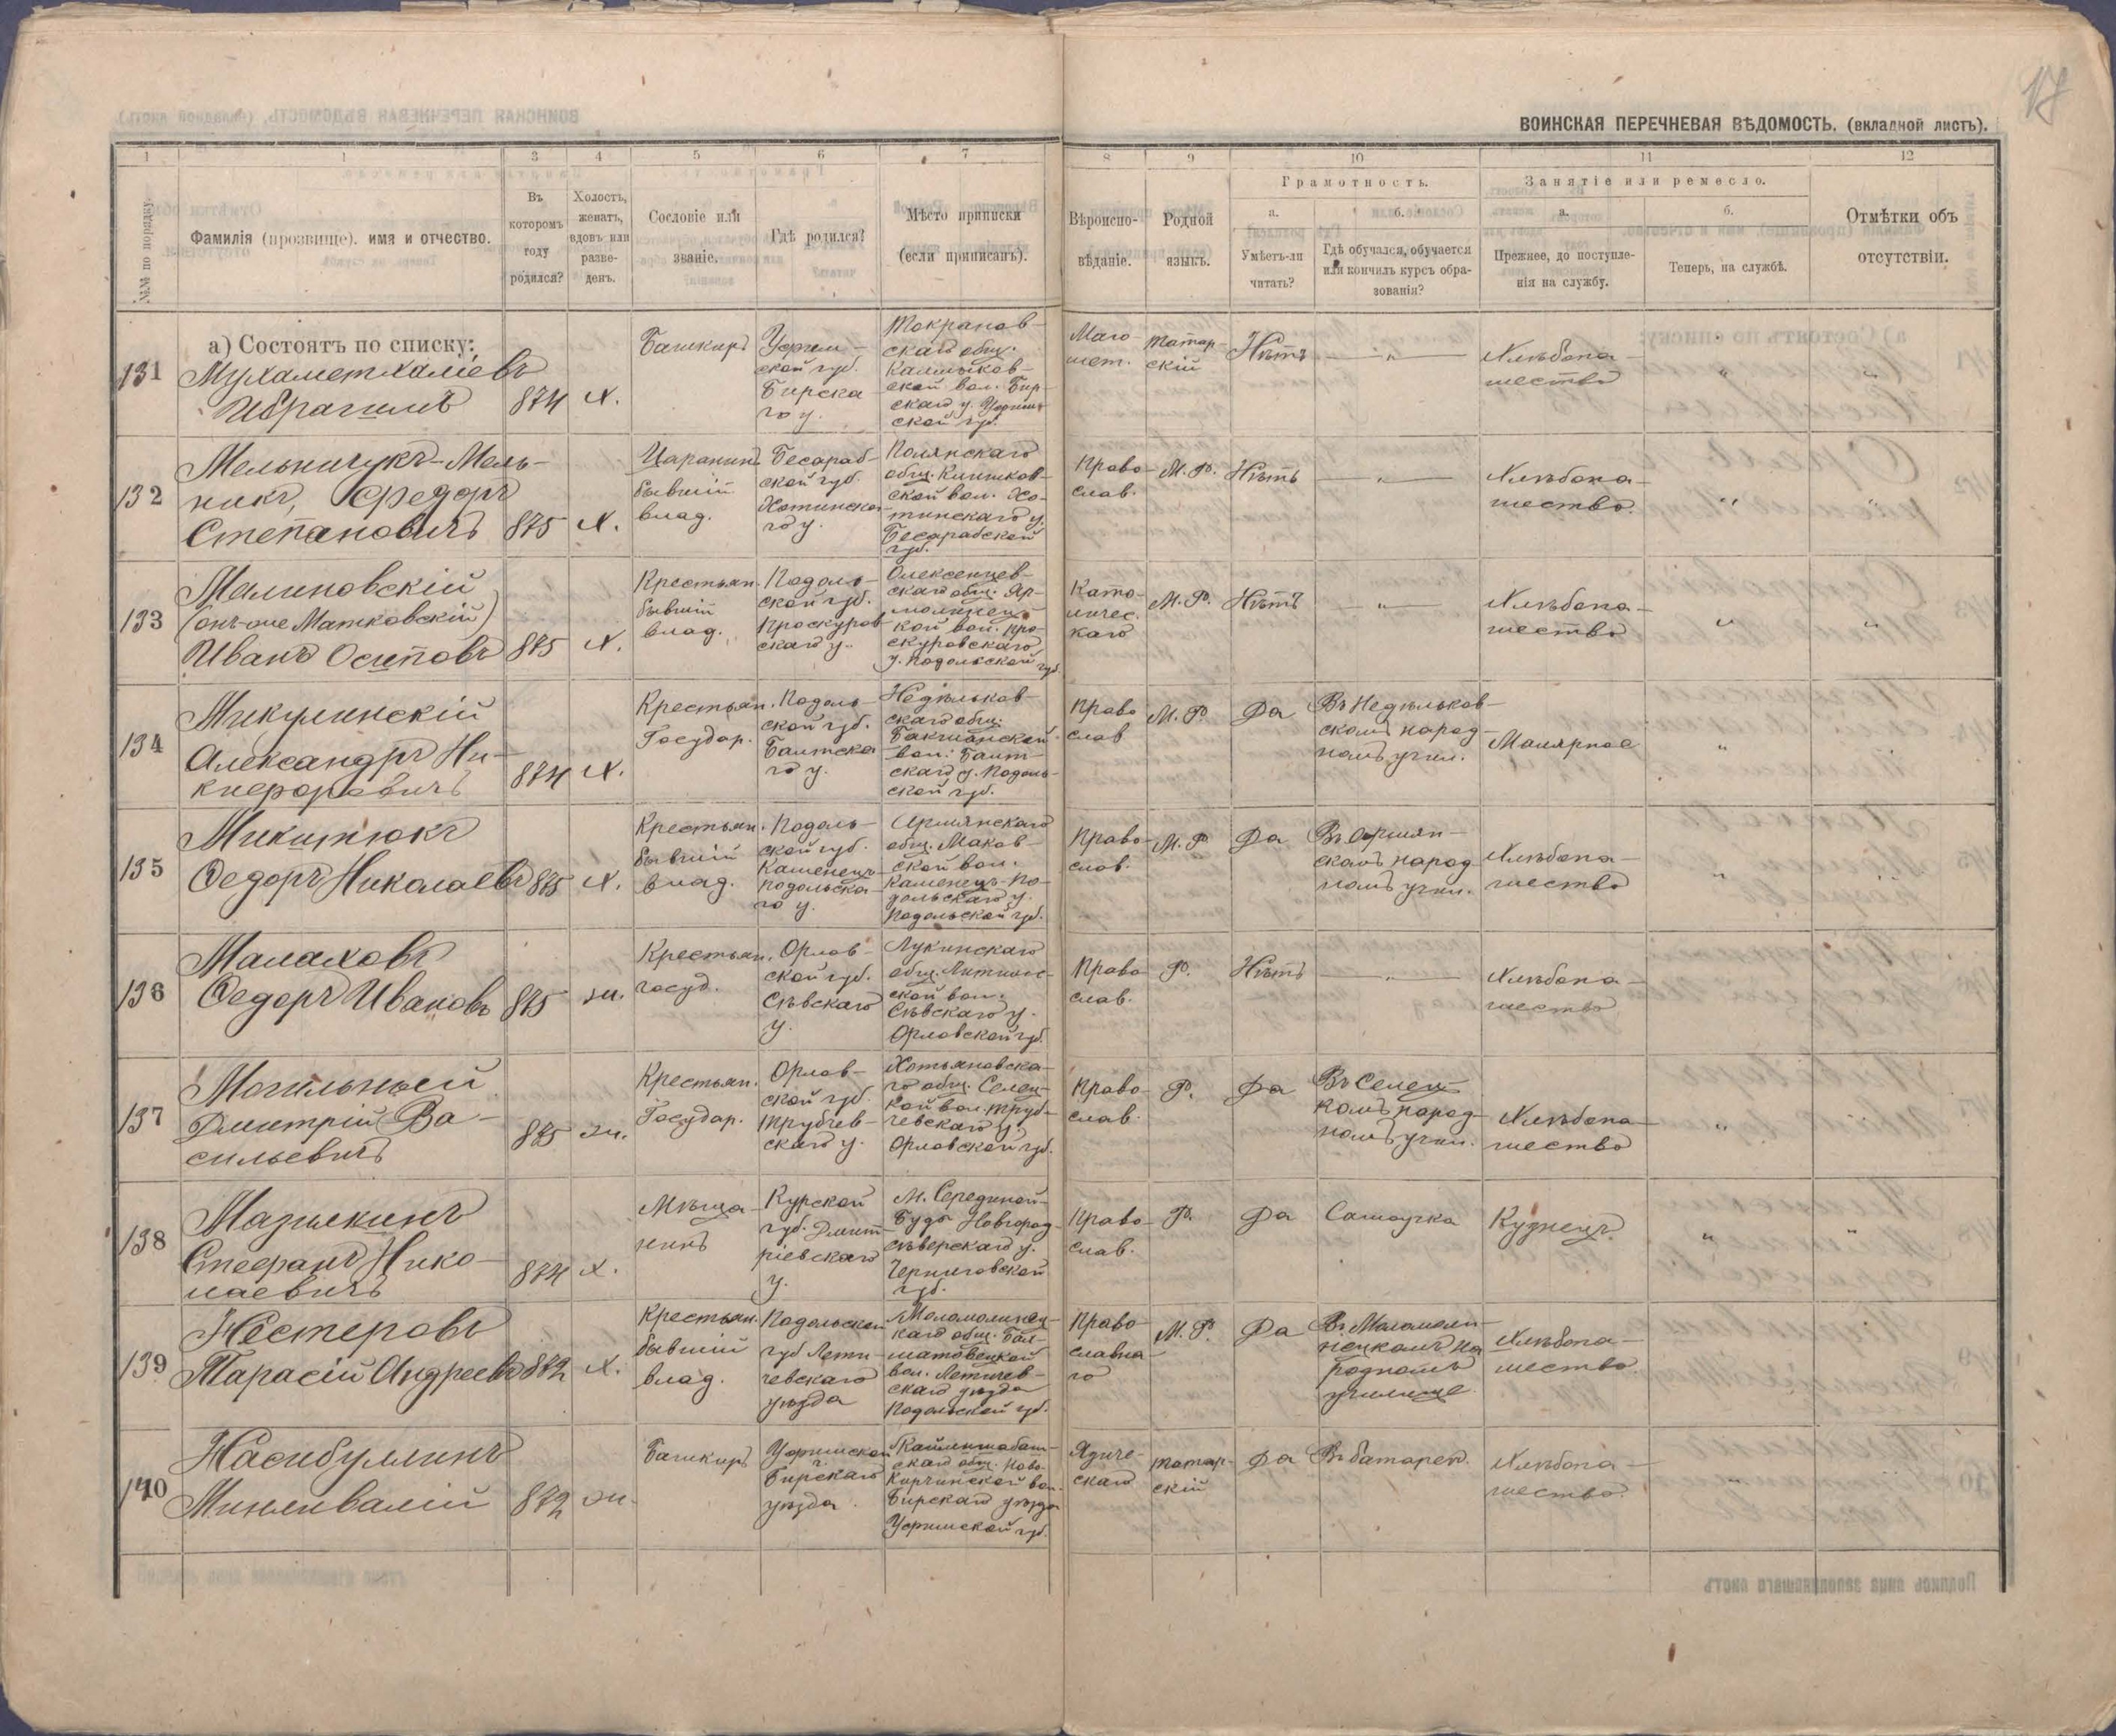 17
ВОИНСКАЯ ПЕРЕЧНЕВАЯ ВѢДОМОСТЬ, (вкладной листъ).
1 1 3 4 5 6 7 8 9 10 11 12
№№ по порядку.
Фамилія (прозвище). имя и отчество.
Въ которомъ году родился?
Холостъ, женатъ, вдовъ или разведенъ.
Сословіе или званіе.
Гдѣ родился?
Мѣсто приписки (если приписанъ).
Вѣроисповѣданіе.
Родной языкъ.
Грамотность.
а. Умѣетъ-ли читать?
б. Гдѣ обучался, обучается или кончилъ курсъ образованія?
Занятіе или ремесло.
а. Прежнее, до поступленія на службу.
б. Теперь, на службѣ.
Отмѣтки объ отсутствіи.
а) Состоятъ по списку:
131
Мухаметхаліевъ
Ибрагимъ
874
Х.
Башкиръ
Уфим-
ской губ.
Бирска-
го у.
скаго общ.
Калмыков-
ской вол. Бир-
скаго у. Уфим-
ской губ.
Маго-
мет.
Татар-
скій
Нѣтъ
— „ —
Хлѣбопа-
шество
„
„
132
Мельничукъ-Мель-
никъ, Федоръ
Степановичъ
875
Х.
Царанинъ
бывшій
влад.
Бесараб-
ской губ.
Хотинска-
го у.
Полянскаго
общ. Клишков-
ской вол. Хо-
тинскаго у.
Бесарабской
губ.
Право-
слав.
М. Р.
Нѣтъ
— „ —
Хлѣбопа-
шество.
„
„
133
Малиновскій
(онъ-же Матковскій)
Иванъ Осиповъ
875
Х.
Крестьян.
бывшій
влад.
Подоль-
ской губ.
Проскуров-
скаго у.
Олексенцев-
скаго общ. Яр-
молинец-
кой вол. Про-
скуровскаго
у. Подольской губ.
Като-
личес.
каго
М. Р.
Нѣтъ
— „ —
Хлѣбопа-
шество
„
„
134
Микулинскій
Александръ Ни-
кифоровичъ
874
Х.
Крестьян.
Государ.
Подоль-
ской губ.
Балтска-
го у.
Недѣльков-
скаго общ.
Бакшанской
вол. Балт-
скаго у. Подоль-
ской губ.
Право
слав
М. Р.
Да
Въ Недѣльков-
скомъ народ-
номъ учил.
Малярное
„
„
135
Микитюкъ
Ѳедоръ Николаевъ
875
Х.
Крестьян.
бывшій
влад.
Подоль-
ской губ.
Каменецъ-
Подольска-
го у.
Армянскаго
общ. Маков-
ской вол.
Каменецъ-По-
дольскаго у.
Подольской губ.
Право-
слав.
М. Р.
Да
Въ Армян-
скомъ народ
номъ учил.
Хлѣбопа-
шество
„
„
136
Малаховъ
Ѳедоръ Ивановъ
875
ж.
Крестьян.
госуд.
Орлов-
ской губ.
Сѣвскаго
у.
Лукинскаго
ской вол.
Сѣвскаго у.
Орловской губ.
Право
слав.
Р.
Нѣтъ
— „ —
Хлѣбопа-
шество
137
Могильный
Дмитрій Ва-
сильевичъ
875
ж.
Крестьян.
Государ.
Орлов-
ской губ.
Трубчев-
скаго у.
Хотьяновска-
го общ. Селец-
кой вол. Труб-
чевскаго у.
Орловской губ.
Право
слав.
Р.
Да
Въ Селец-
комъ народ-
номъ учил.
Хлѣбопа-
шество
„
„
138
Мазилкинъ
Стефанъ Нико-
лаевичъ
874
Х.
Мѣща-
нинъ
Курской
губ. Дмит-
ріевскаго
у.
м. Серединой-
Буды Новгород-
сѣверскаго у.
Черниговской
губ.
Право-
слав.
Р.
Да
Самоучка
Кузнецъ
„
„
139
Нестеровъ
Тарасій Андреевъ
872
Х.
Крестьян.
бывшій
влад.
Подольской
губ Лети-
чевскаго
уѣзда
каго общ.
вол. Летичев-
скаго уѣзда
Подольской губ.
Право-
славна-
го
М. Р.
Да
родномъ
училище
Хлѣбопа-
шество
140
Насибуллинъ
Минливалій
872
ж.
Башкиръ
Уфимской
г.
Бирскаго
уѣзда.
скаго общ. Ново-
Бирскаго уѣзда
Уфимской губ.
скаго
татар-
скій
Да
Въ батареѣ.
Хлѣбопа-
шество.